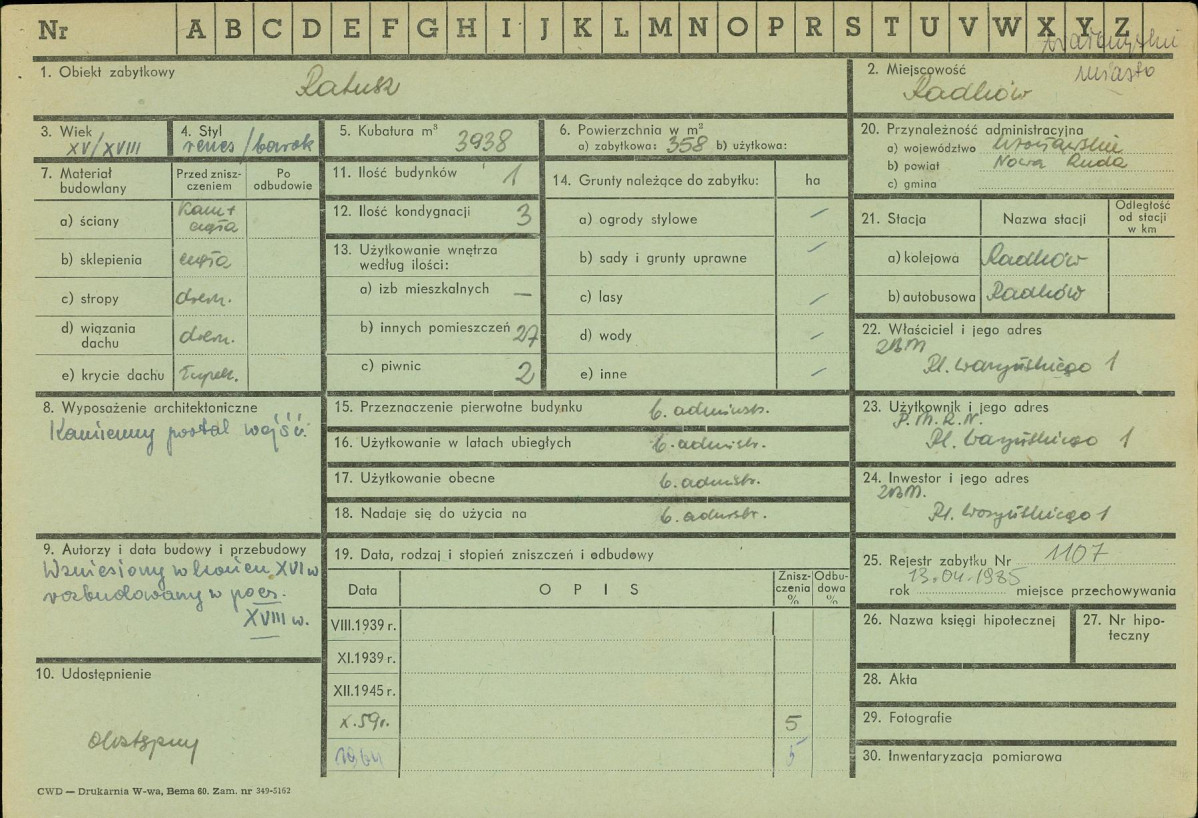 Nr A B C D E F G H I J K L M N O P R S T U V W X Y Z
miasto
1. Obiekt zabytkowy
Ratusz
2. Miejscowość
Radków
3. Wiek
XV/XVIII
4. Styl
renes/barok
5. Kubatura m³ 3938
6. Powierzchnia w m²
a) zabytkowa: 358 b) użytkowa:
20. Przynależność administracyjna
a) województwo Wrocławskie
b) powiat Nowa Ruda
c) gmina
7. Materiał budowlany
Przed znisz-
czeniem
Po
odbudowie
a) ściany kam+
cegła
b) sklepienia cegła
c) stropy drewn.
d) wiązania
dachu drewn.
e) krycie dachu łupek.
11. Ilość budynków 1
12. Ilość kondygnacji 3
13. Użytkowanie wnętrza
według ilości:
a) izb mieszkalnych —
b) innych pomieszczeń 27
c) piwnic 2
14. Grunty należące do zabytku: ha
a) ogrody stylowe /
b) sady i grunty uprawne /
c) lasy /
d) wody /
e) inne /
21. Stacja
Nazwa stacji
Odległość
od stacji
w km
a) kolejowa Radków
b) autobusowa Radków
22. Właściciel i jego adres
ZBM
Pl. Waryńskiego 1
8. Wyposażenie architektoniczne
Kamienny portal wejść.
15. Przeznaczenie pierwotne budynku b. administr.
16. Użytkowanie w latach ubiegłych b. administr.
17. Użytkowanie obecne b. administr.
18. Nadaje się do użycia na b. administr.
23. Użytkownik i jego adres
P.M.R.N.
Pl. Waryńskiego 1
24. Inwestor i jego adres
ZBM.
Pl. Waryńskiego 1
9. Autorzy i data budowy i przebudowy
Wzniesiony w koniec XVI w
rozbudowany w pocz.
XVIII w.
19. Data, rodzaj i stopień zniszczeń i odbudowy
Data
O P I S
Znisz-
czenia
%
Odbu-
dowa
%
VIII.1939 r.
XI.1939 r.
XII.1945 r.
X.59r. 5
1964 5
25. Rejestr zabytku Nr 1107
13.04.1985
rok miejsce przechowywania
26. Nazwa księgi hipotecznej
27. Nr hipo-
teczny
28. Akta
29. Fotografie
30. Inwentaryzacja pomiarowa
10. Udostępnienie
dostępny
CWD — Drukarnia W-wa, Bema 60. Zam. nr 349-5162